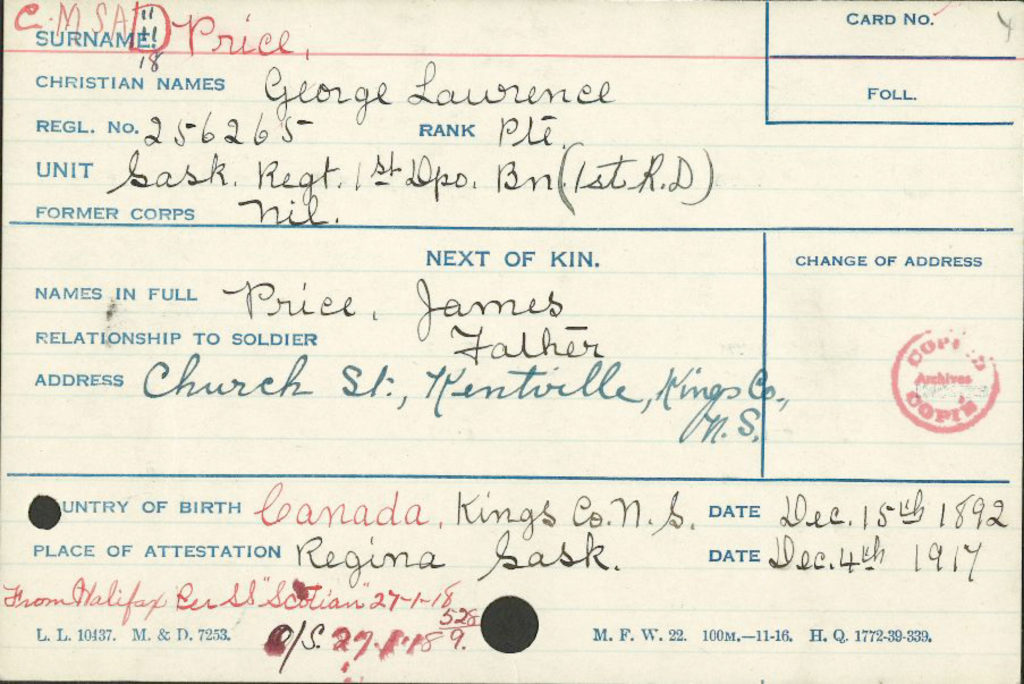 C. M. S. A. D 11/11/18
SURNAME Price,
CARD No.
CHRISTIAN NAMES George Lawrence
FOLL.
REGL. No. 256265 RANK Pte.
UNIT Sask. Regt. 1st Dpo. Bn. (1st R.D)
FORMER CORPS Nil.
NEXT OF KIN.
CHANGE OF ADDRESS
NAMES IN FULL Price, James
RELATIONSHIP TO SOLDIER Father
ADDRESS Church St., Kentville, Kings Co.,
N.S.
COPIED
Archives
COPIÉ
UNTRY OF BIRTH Canada, Kings Co. N. S. DATE Dec. 15th 1892
PLACE OF ATTESTATION Regina Sask. DATE Dec. 4th 1917
From Halifax Per SS "Scotian" 27-1-18
528
9.
O/S. 27.1.18
L. L. 10437. M. & D. 7253.
M. F. W. 22. 100M.—11-16. H. Q. 1772-39-339.